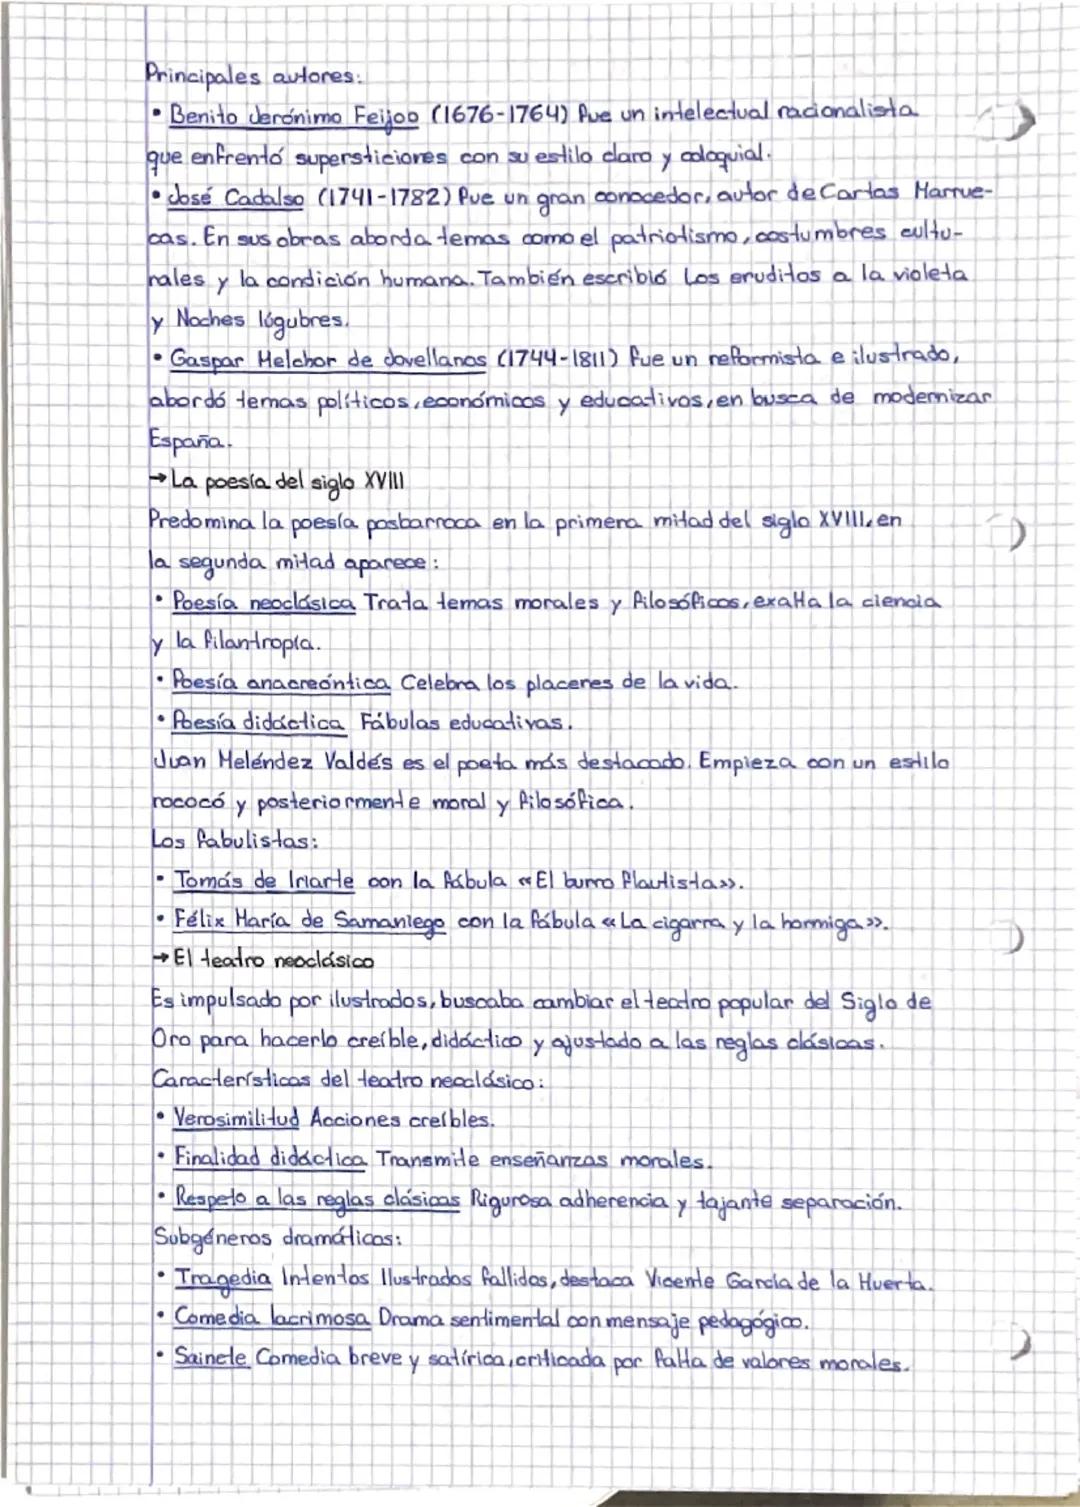 Principales autores:
• Benito Jerónimo Feijoo (1676-1764) fue un intelectual racionalista
que enfrentó supersticiones con su estilo claro y coloquial.
• José Cadalso (1741-1782) fue un gran conocedor, autor de Cartas Marrue-
cas. En sus obras aborda temas como el patriotismo, costumbres cultu-
rales y la condición humana. También escribió Los eruditos a la violeta
y Noches lúgubres.
• Gaspar Melchor de Jovellanos (1744-1811) fue un reformista e ilustrado,
abordó temas políticos, económicos y educativos, en busca de modernizar
España.
→ La poesía del siglo XVIII
Predomina la poesía posbarroca en la primera mitad del siglo XVIII, en
la segunda mitad aparece:
• Poesía neoclásica Trata temas morales y filosóficos, exalta la ciencia
y la filantropía.
• Poesía anacreóntica Celebra los placeres de la vida.
• Poesía didáctica Fábulas educativas.
Juan Meléndez Valdés es el poeta más destacado. Empieza con un estilo
rococó y posteriormente moral y filosófica.
Los fabulistas:
• Tomás de Iriarte con la fábula «El burro flautista».
• Félix María de Samaniego con la fábula «La cigarra y la hormiga».
→ El teatro neoclásico
Es impulsado por ilustrados, buscaba cambiar el teatro popular del Siglo de
Oro para hacerlo creíble, didáctico y ajustado a las reglas clásicas.
Características del teatro neoclásico:
• Verosimilitud Acciones creíbles.
• Finalidad didáctica Transmite enseñanzas morales.
• Respeto a las reglas clásicas Rigurosa adherencia y tajante separación.
Subgéneros dramáticos:
• Tragedia Intentos Ilustrados fallidos, destaca Vicente García de la Huerta.
• Comedia lacrimosa Drama sentimental con mensaje pedagógico.
• Sainete Comedia breve y satírica, criticada por falta de valores morales.